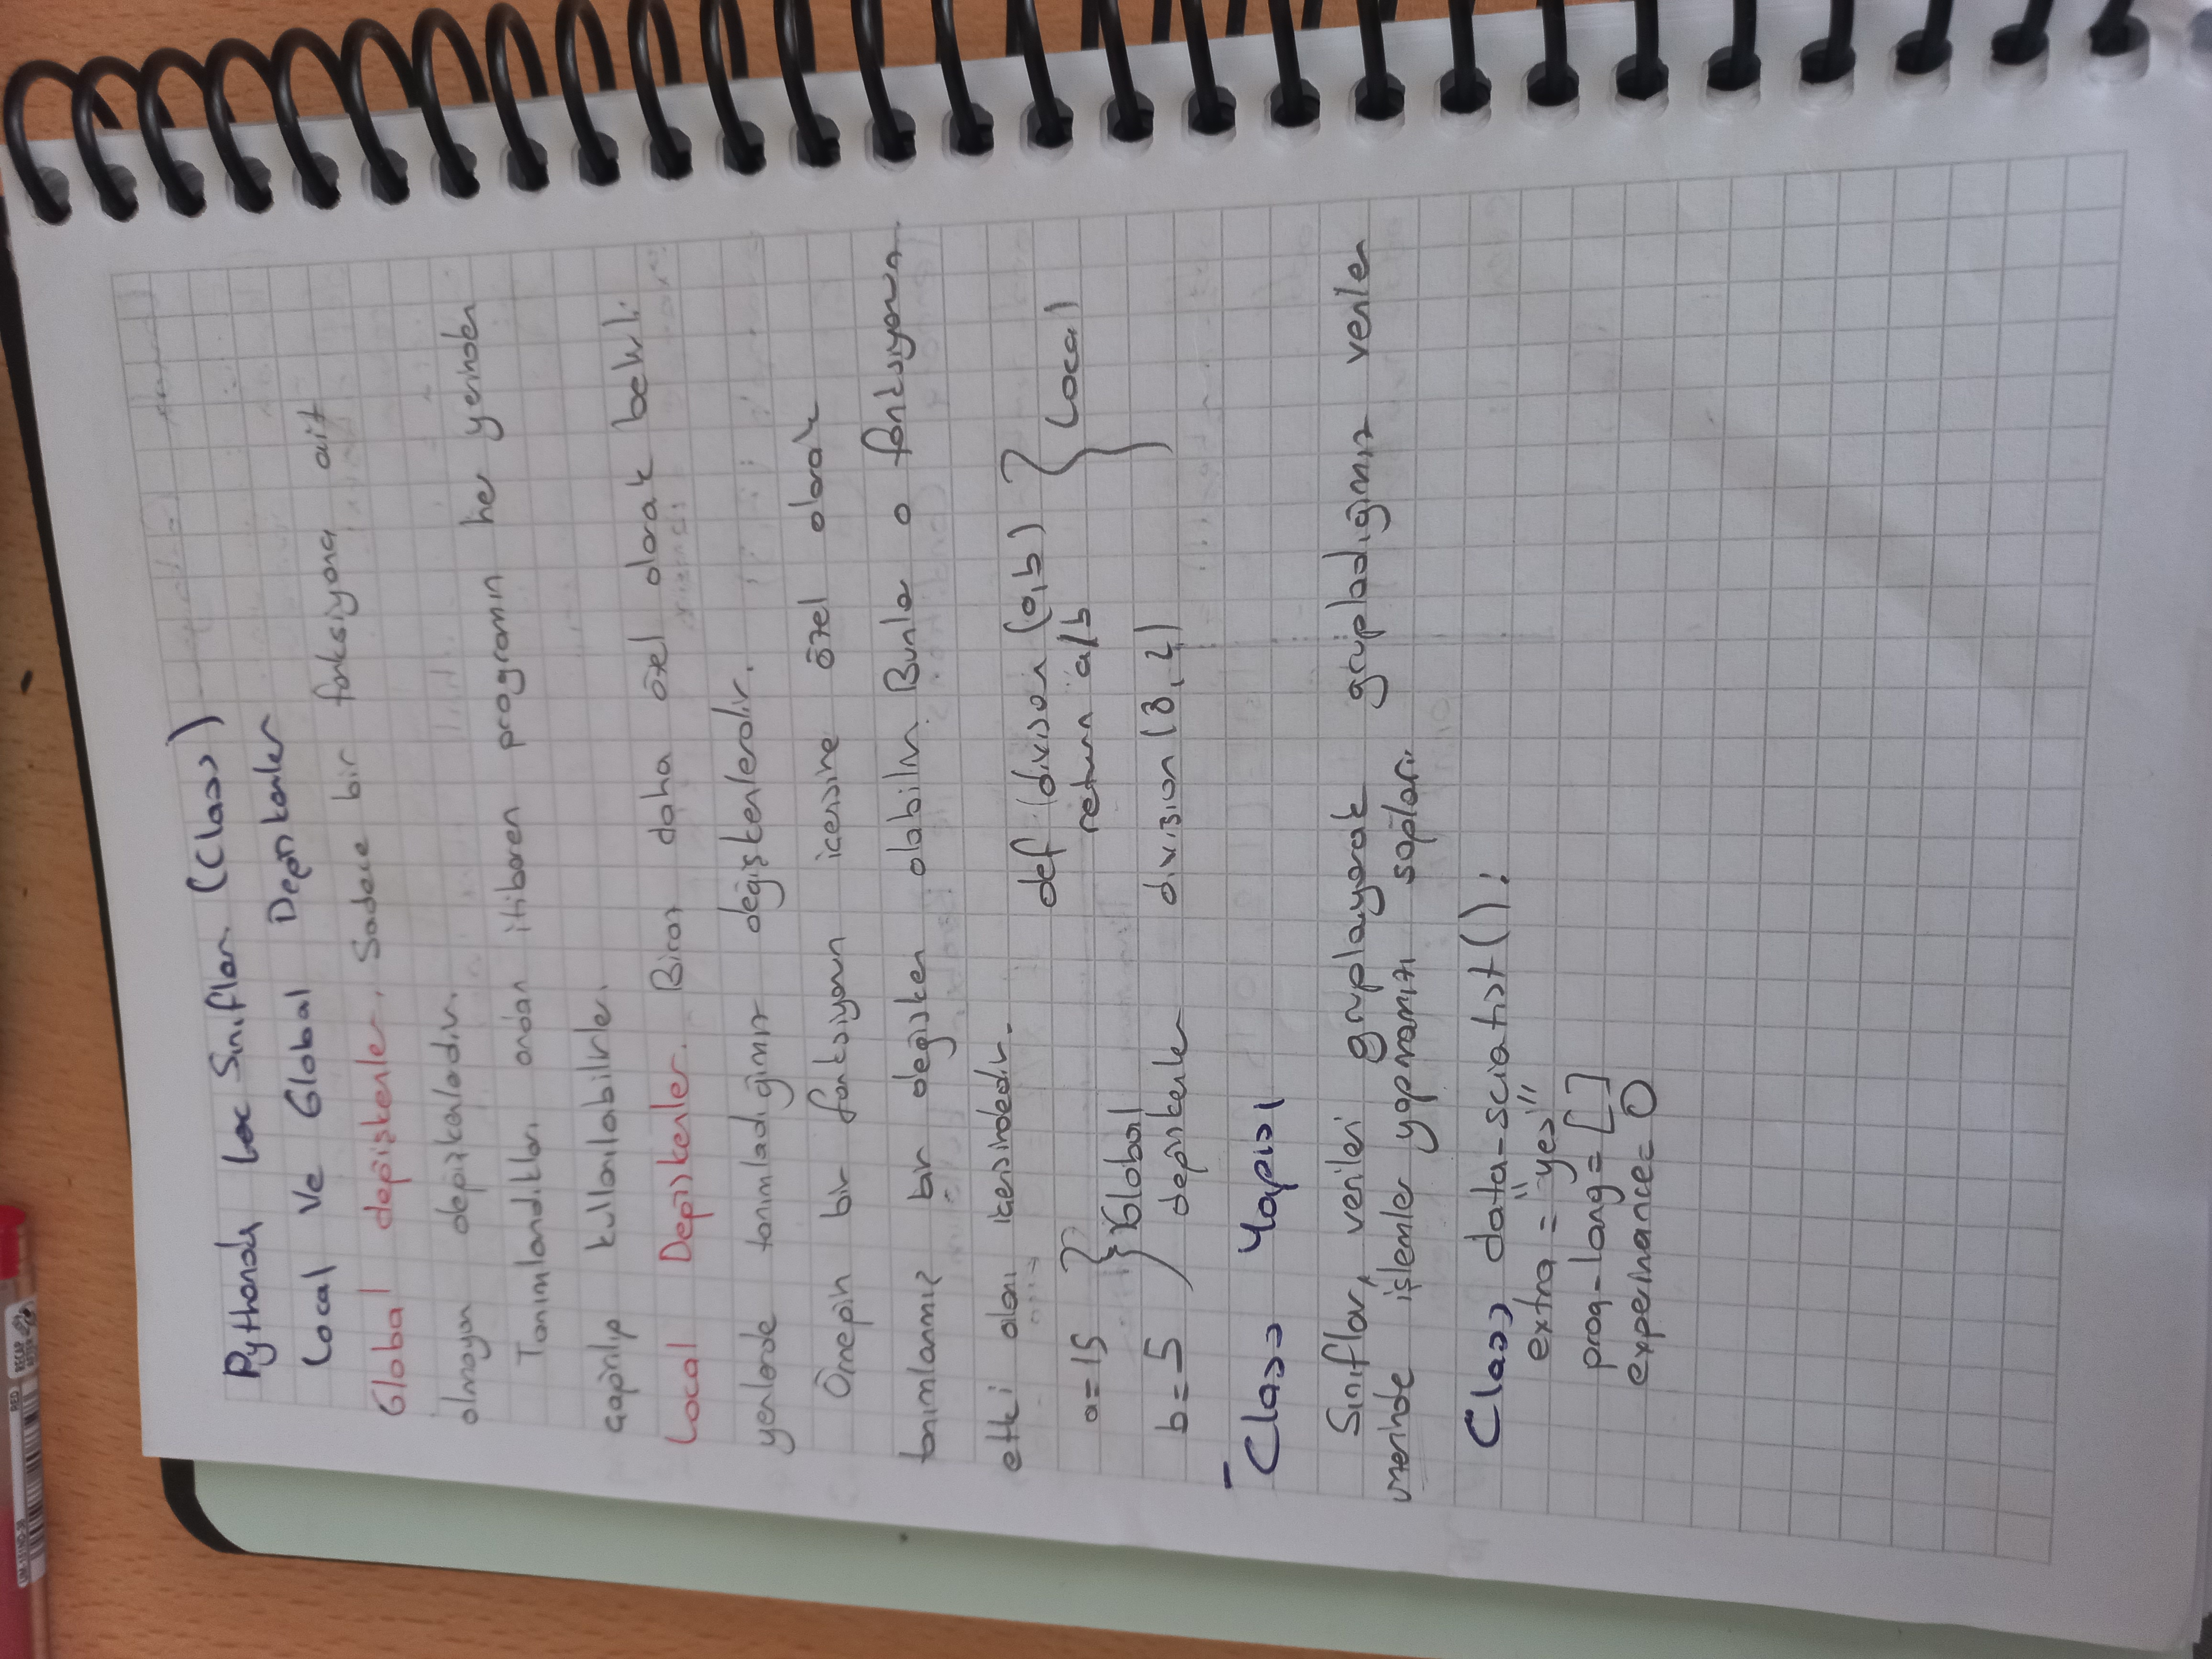 UM-151ND-38 RED RECAP AFTER
Pythonda Loc Sınıfları (Class)
Local Ve Global Değişkenler
Global değişkenler. Sadece bir fonksiyona ait
olmayan değişkenledir.
Tanımlandıkları andan itibaren programın her yerinden
çağrılıp kullanılabilirler.
Local Değişkenler. Biraz daha özel olarak belirli
yerlerde tanımladığımız değişkenlerdir.
Örneğin bir fonksiyonun icersine özel olarak
tanımlanmış bir değişken olabilir. Bunlar o fonksiyonun
etki alanı icerisindedir.
def divison (a,b)
return a/b
division (8, 2)
} Local
a=15
b=5
} Global
değişkenler
Class Yapısı
Sınıflar, verileri gruplayarak grupladığımız veriler
üzerinde işlemler yapmamızı sağları.
Class data-scientist():
extra = "yes"
prog-lang = []
experinance= 0